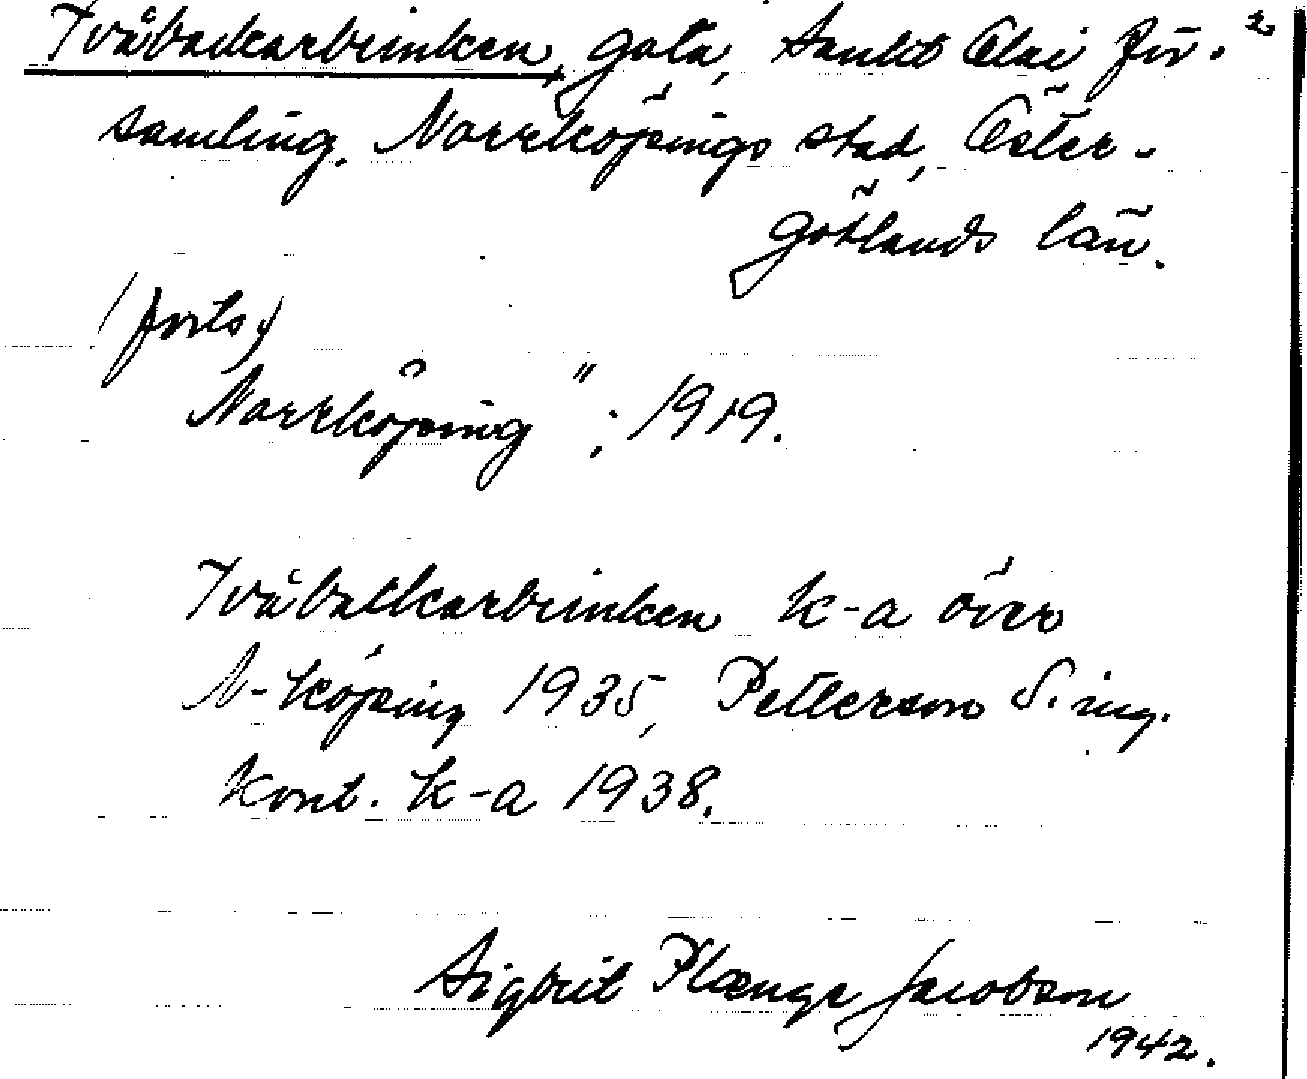 Tvåbalkarbrinken, gata, Sankt Olai för- 2
samling, Norrköpings stad, Öster-
götlands län.
(forts)
Norrköping"; 1919.
Tvåbalkarbrinken k-a över
N-köping 1935, Petterson S. ing.
kont. k-a 1938.
Sigbrit Plænge Jacobson
1942.